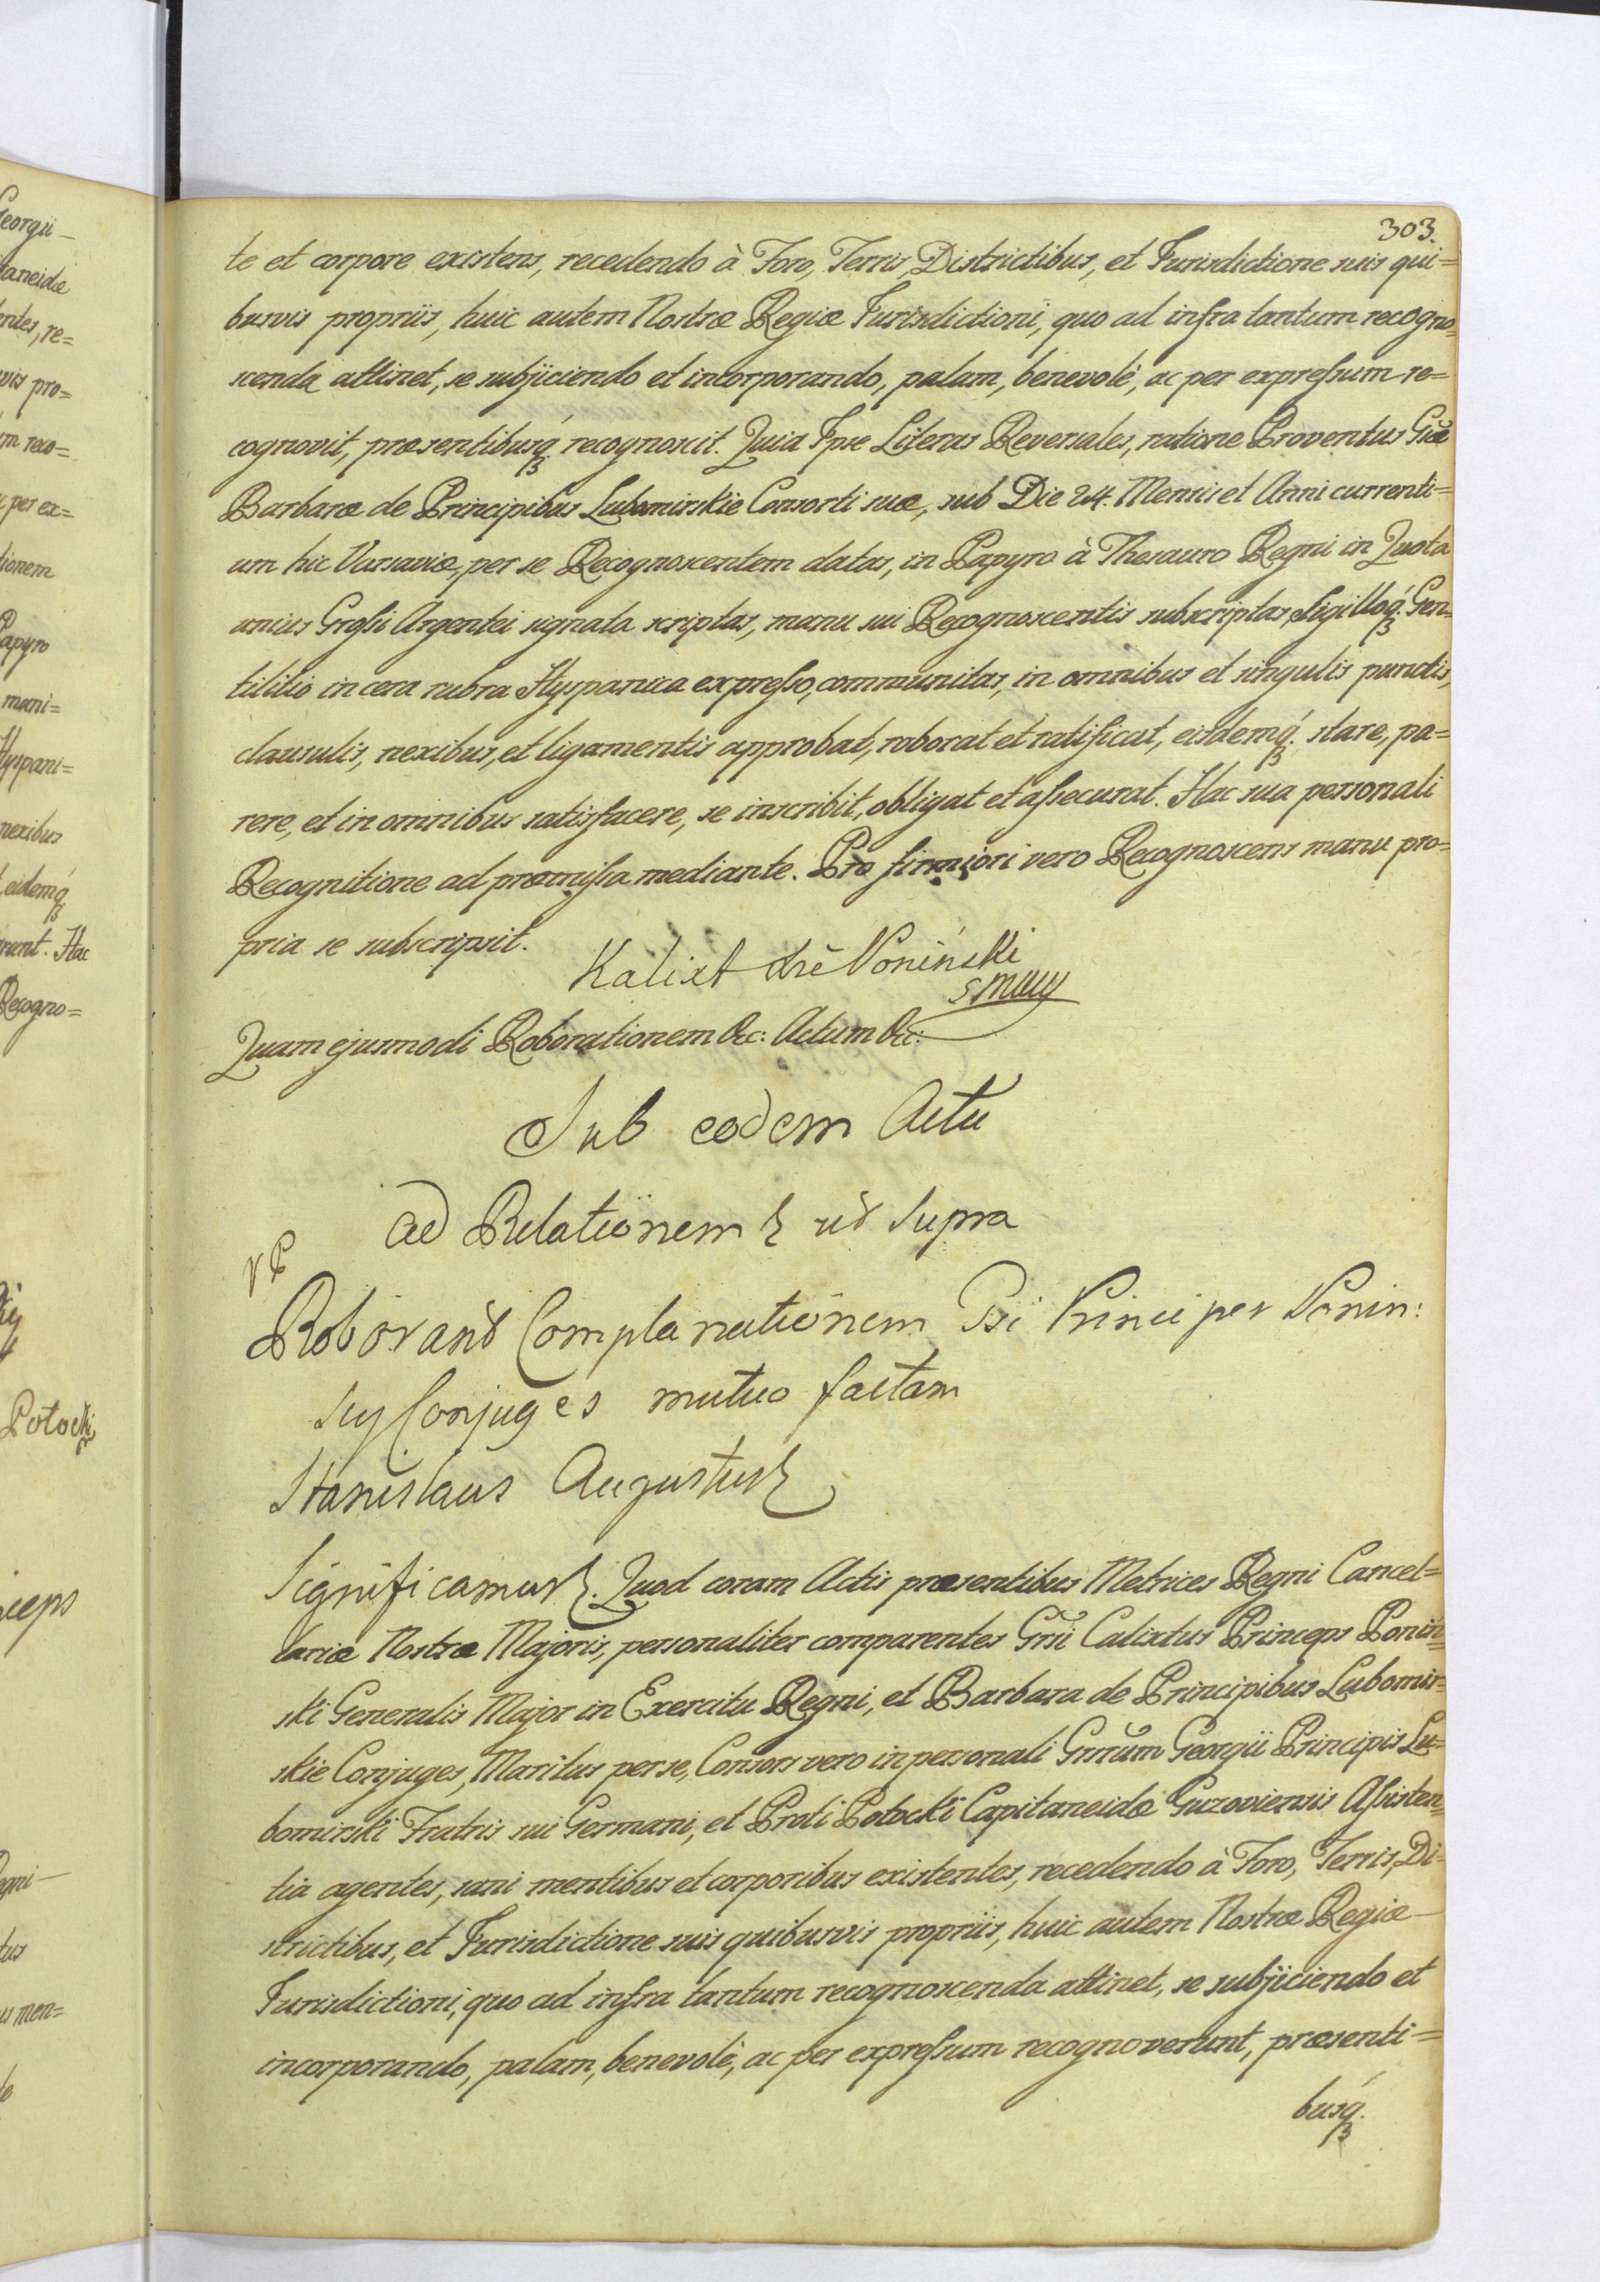 303.
te et corpore existens, recedendo à Foro, Terris, Districtibus, et Jurisdictione suis qui=
busvis propriis, huic autem Nostræ Regiæ Jurisdictioni, quo ad infra tantum recogno=
scenda attinet, se subjiciendo et incorporando, palam, benevolè, ac per expressum re=
cognovit, præsentibusq́ꝫ recognoscit. Quia Ipse Literas Reversales, ratione Proventus Gñæ
Barbaræ de Principibus Lubomirskie Consorti suæ, sub Die 24. Mensis et Anni currenti=
um hic Varsaviæ, per se Recognoscentem datas, in Papyro à Thesauro Regni in Quota
unius Grossi Argentei signata scriptas, manu sui Recognoscentis subscriptas, Sigilloq́ꝫ Gen=
tilitio in cera rubra Hyspanica expresso, communitas, in omnibus et singulis punctis,
clausulis, nexibus, et ligamentis approbat, roborat et ratificat, eisdemq́ꝫ stare, pa=
rere, et in omnibus satisfacere, se inscribit, obligat et assecurat. Hac sua personali
Recognitione ad præmissa mediante. Pro firmiori vero Recognoscens manu pro=
pria se subscripsit.
Kalixt Xżē Poniński
Quam ejusmodi Roborationem &c: Actum &c:
Sub eodem Actu
ad Relationem ut supra
Roborant Complanationem Principes Ponin:
scy Conjuges mutuo factam
Stanislaus Augustus
Significamus. Quod coram Actis præsentibus Metrices Regni Cancel=
lariæ Nostræ Majoris, personaliter comparentes Gñi Calixtus Princeps Poniń=
ski Generalis Major in Exercitu Regni, et Barbara de Principibus Lubomir=
skie Conjuges, Maritus per se, Consors vero in personali Gnrum Georgii Principis Lu=
bomirski Fratris sui Germani, et Proti Potocki Capitaneidæ Guzoviensis Assisten=
tia agentes, sani mentibus et corporibus existentes, recedendo à Foro, Terris, Di=
strictibus, et Jurisdictione suis quibusvis propriis, huic autem Nostræ Regiæ
Jurisdictioni, quo ad infra tantum recognoscenda attinet, se subjiciendo et
incorporando, palam, benevolè, ac per expressum recognoverunt, præsenti=
busq́ꝫ